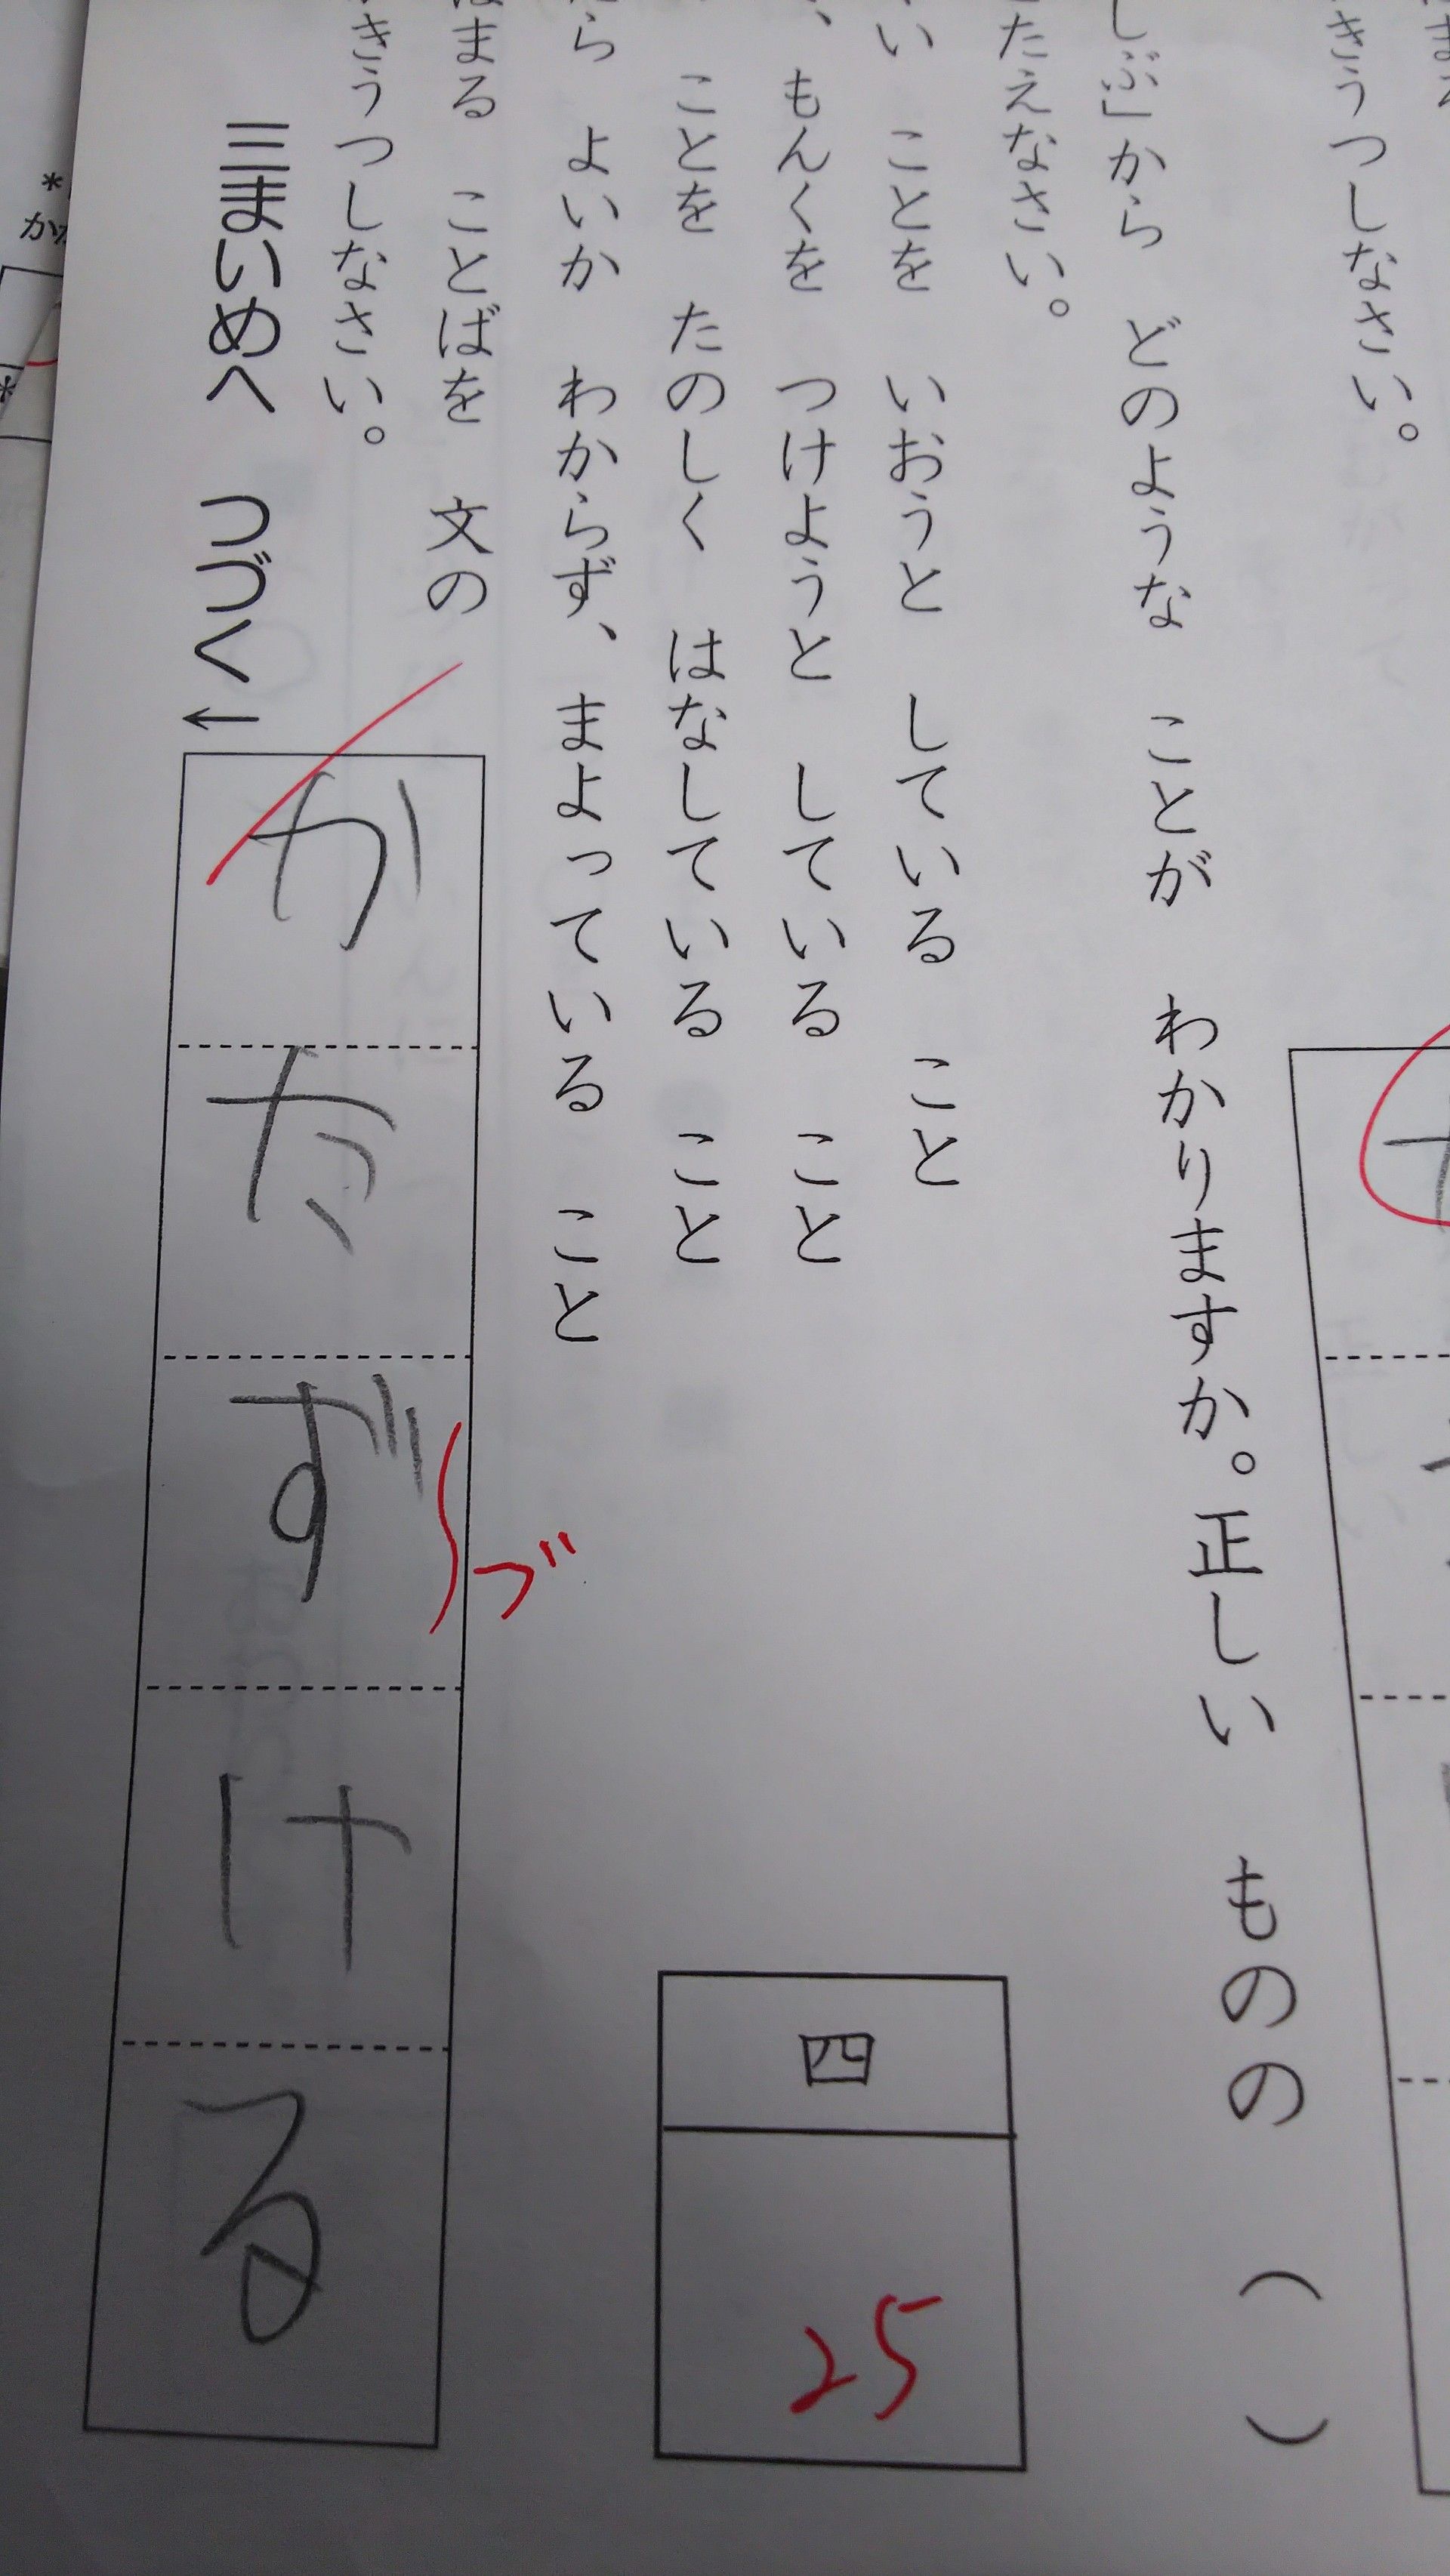 きうつしなさい。
しぶ」から どのような ことが わかりますか。正しい ものの ( )
たえなさい。
い ことを いおうと している こと
、もんくを つけようと している こと
ことを たのしく はなしている こと
ら よいか わからず、まよっている こと
四
25
はまる ことばを 文の
きうつしなさい。
かたずける
づ
三まいめへ つづく ←